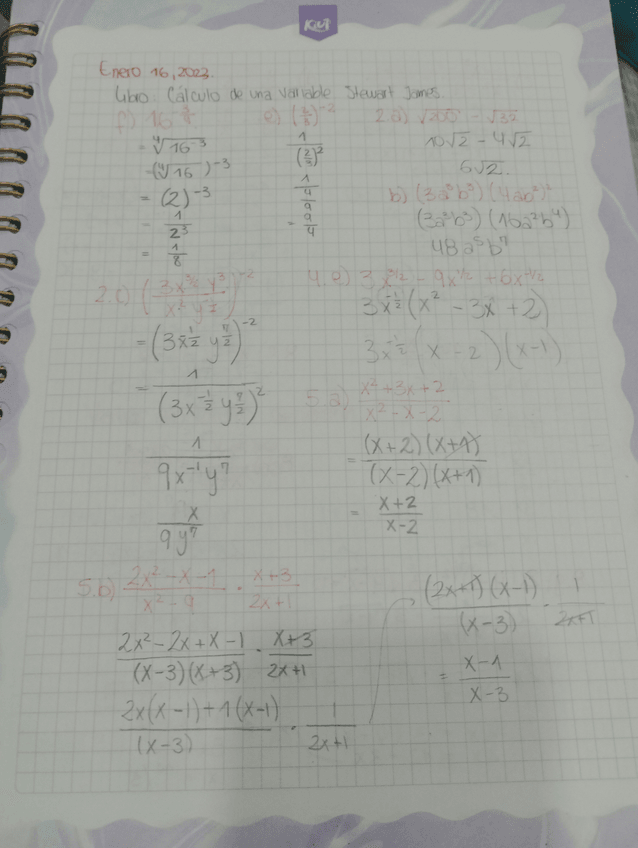 Kiut
Enero 16, 2023.
Libro. Cálculo de una variable. Stewart James.
f) 16
= ∜16⁻³
= (∜16)⁻³
= (2)⁻³
= 1/2³
= 1/8
e) (2/3)⁻²
1/(2/3)²
1/(4/9)
= 9/4
2.a) √200 - √32
10√2 - 4√2
6√2.
b) (3a³b³)(4ab²)²
(3a³b³)(16a²b⁴)
48a⁵b⁷
2.c) (3x^(3/2) y³ / x² y^(-1/2))⁻²
= (3x^(-1/2) y^(7/2))⁻²
= 1/(3x^(-1/2) y^(7/2))²
1/(9x⁻¹y⁷)
x/(9y⁷)
4.e) 3x^(3/2) - 9x^(1/2) + 6x^(-1/2)
3x^(-1/2) (x² - 3x + 2)
3x^(-1/2) (x - 2)(x-1)
5.a) (x²+3x+2)/(x²-x-2)
= (x+2)(x+1)/(x-2)(x+1)
= (x+2)/(x-2)
5.b) (2x²-x-1)/(x²-9) · (x+3)/(2x+1)
(2x²-2x+x-1)/(x-3)(x+3) · (x+3)/(2x+1)
(2x(x-1)+1(x-1))/(x-3) · 1/(2x+1)
(2x+1)(x-1)/(x-3) · 1/(2x+1)
= (x-1)/(x-3)